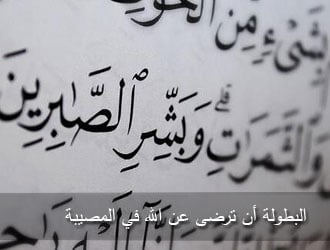 بِشَىْءٍ مِّنَ الْخَوْفِ
وَالثَّمَرَٰتِ ۗ وَبَشِّرِ الصَّٰبِرِينَ
البطولة أن ترضى عن الله في المصيبة